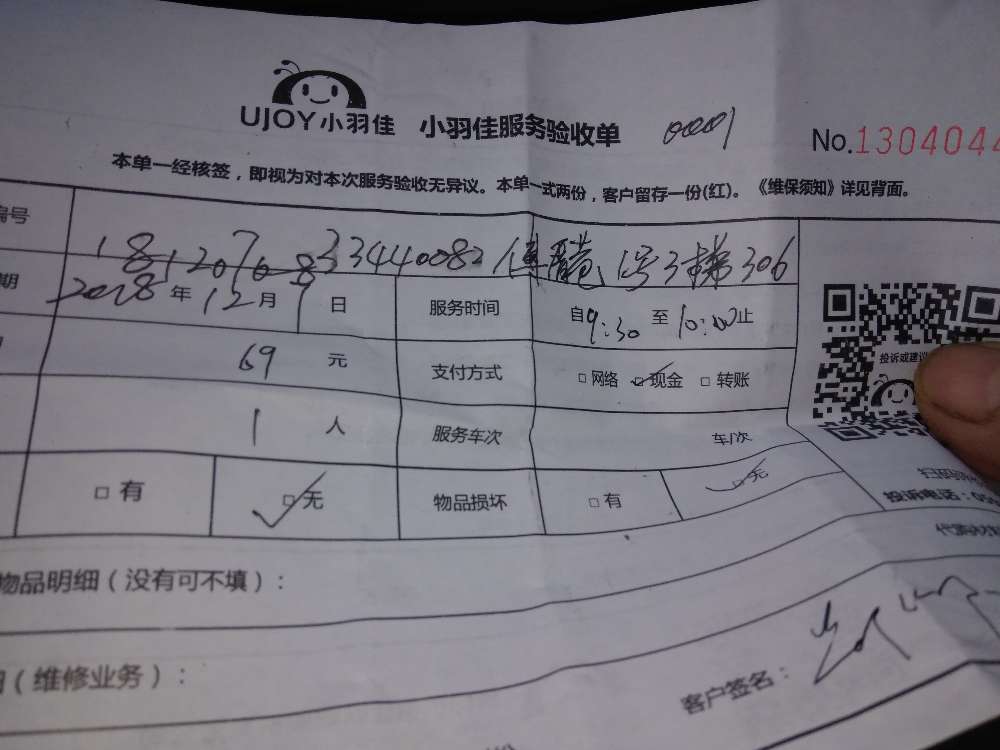 UJOY小羽佳 小羽佳服务验收单 0001
No.1304044
本单一经核签，即视为对本次服务验收无异议。本单一式两份，客户留存一份(红)。《维保须知》详见背面。
编号 1812070833440082 1号3梯306
期 2018年12月 日 服务时间 自9:30至10:00止
69元 支付方式 □网络 □现金 □转账
1人 服务车次 车/次
□有 □无 物品损坏 □有 □无
投诉或建议
投诉电话：05
物品明细（没有可不填）：
（维修业务）：
客户签名：